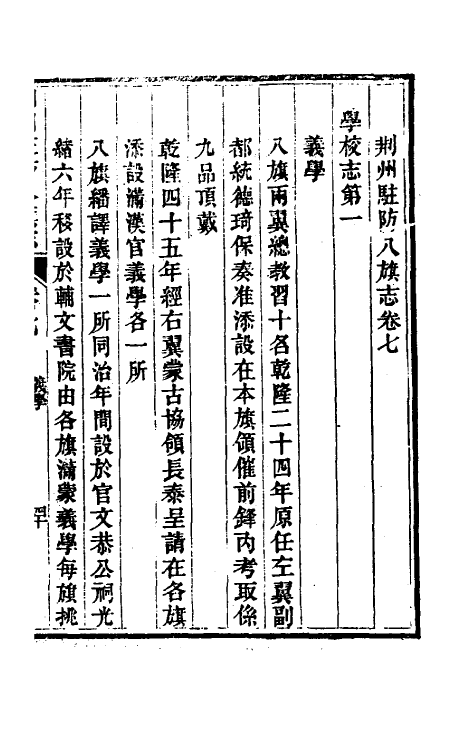 荆州駐防八旗志卷七
學校志第一
義學
八旗兩翼總教習十名乾隆二十四年原任左翼副
都統德琦保奏准添設在本旗領催前鋒內考取係
九品頂戴
乾隆四十五年經右翼蒙古協領長泰呈請在各旗
添設滿漢官義學各一所
八旗繙譯義學一所同治年間設於官文恭公祠光
緒六年移設於輔文書院由各旗滿蒙義學每旗挑
義學